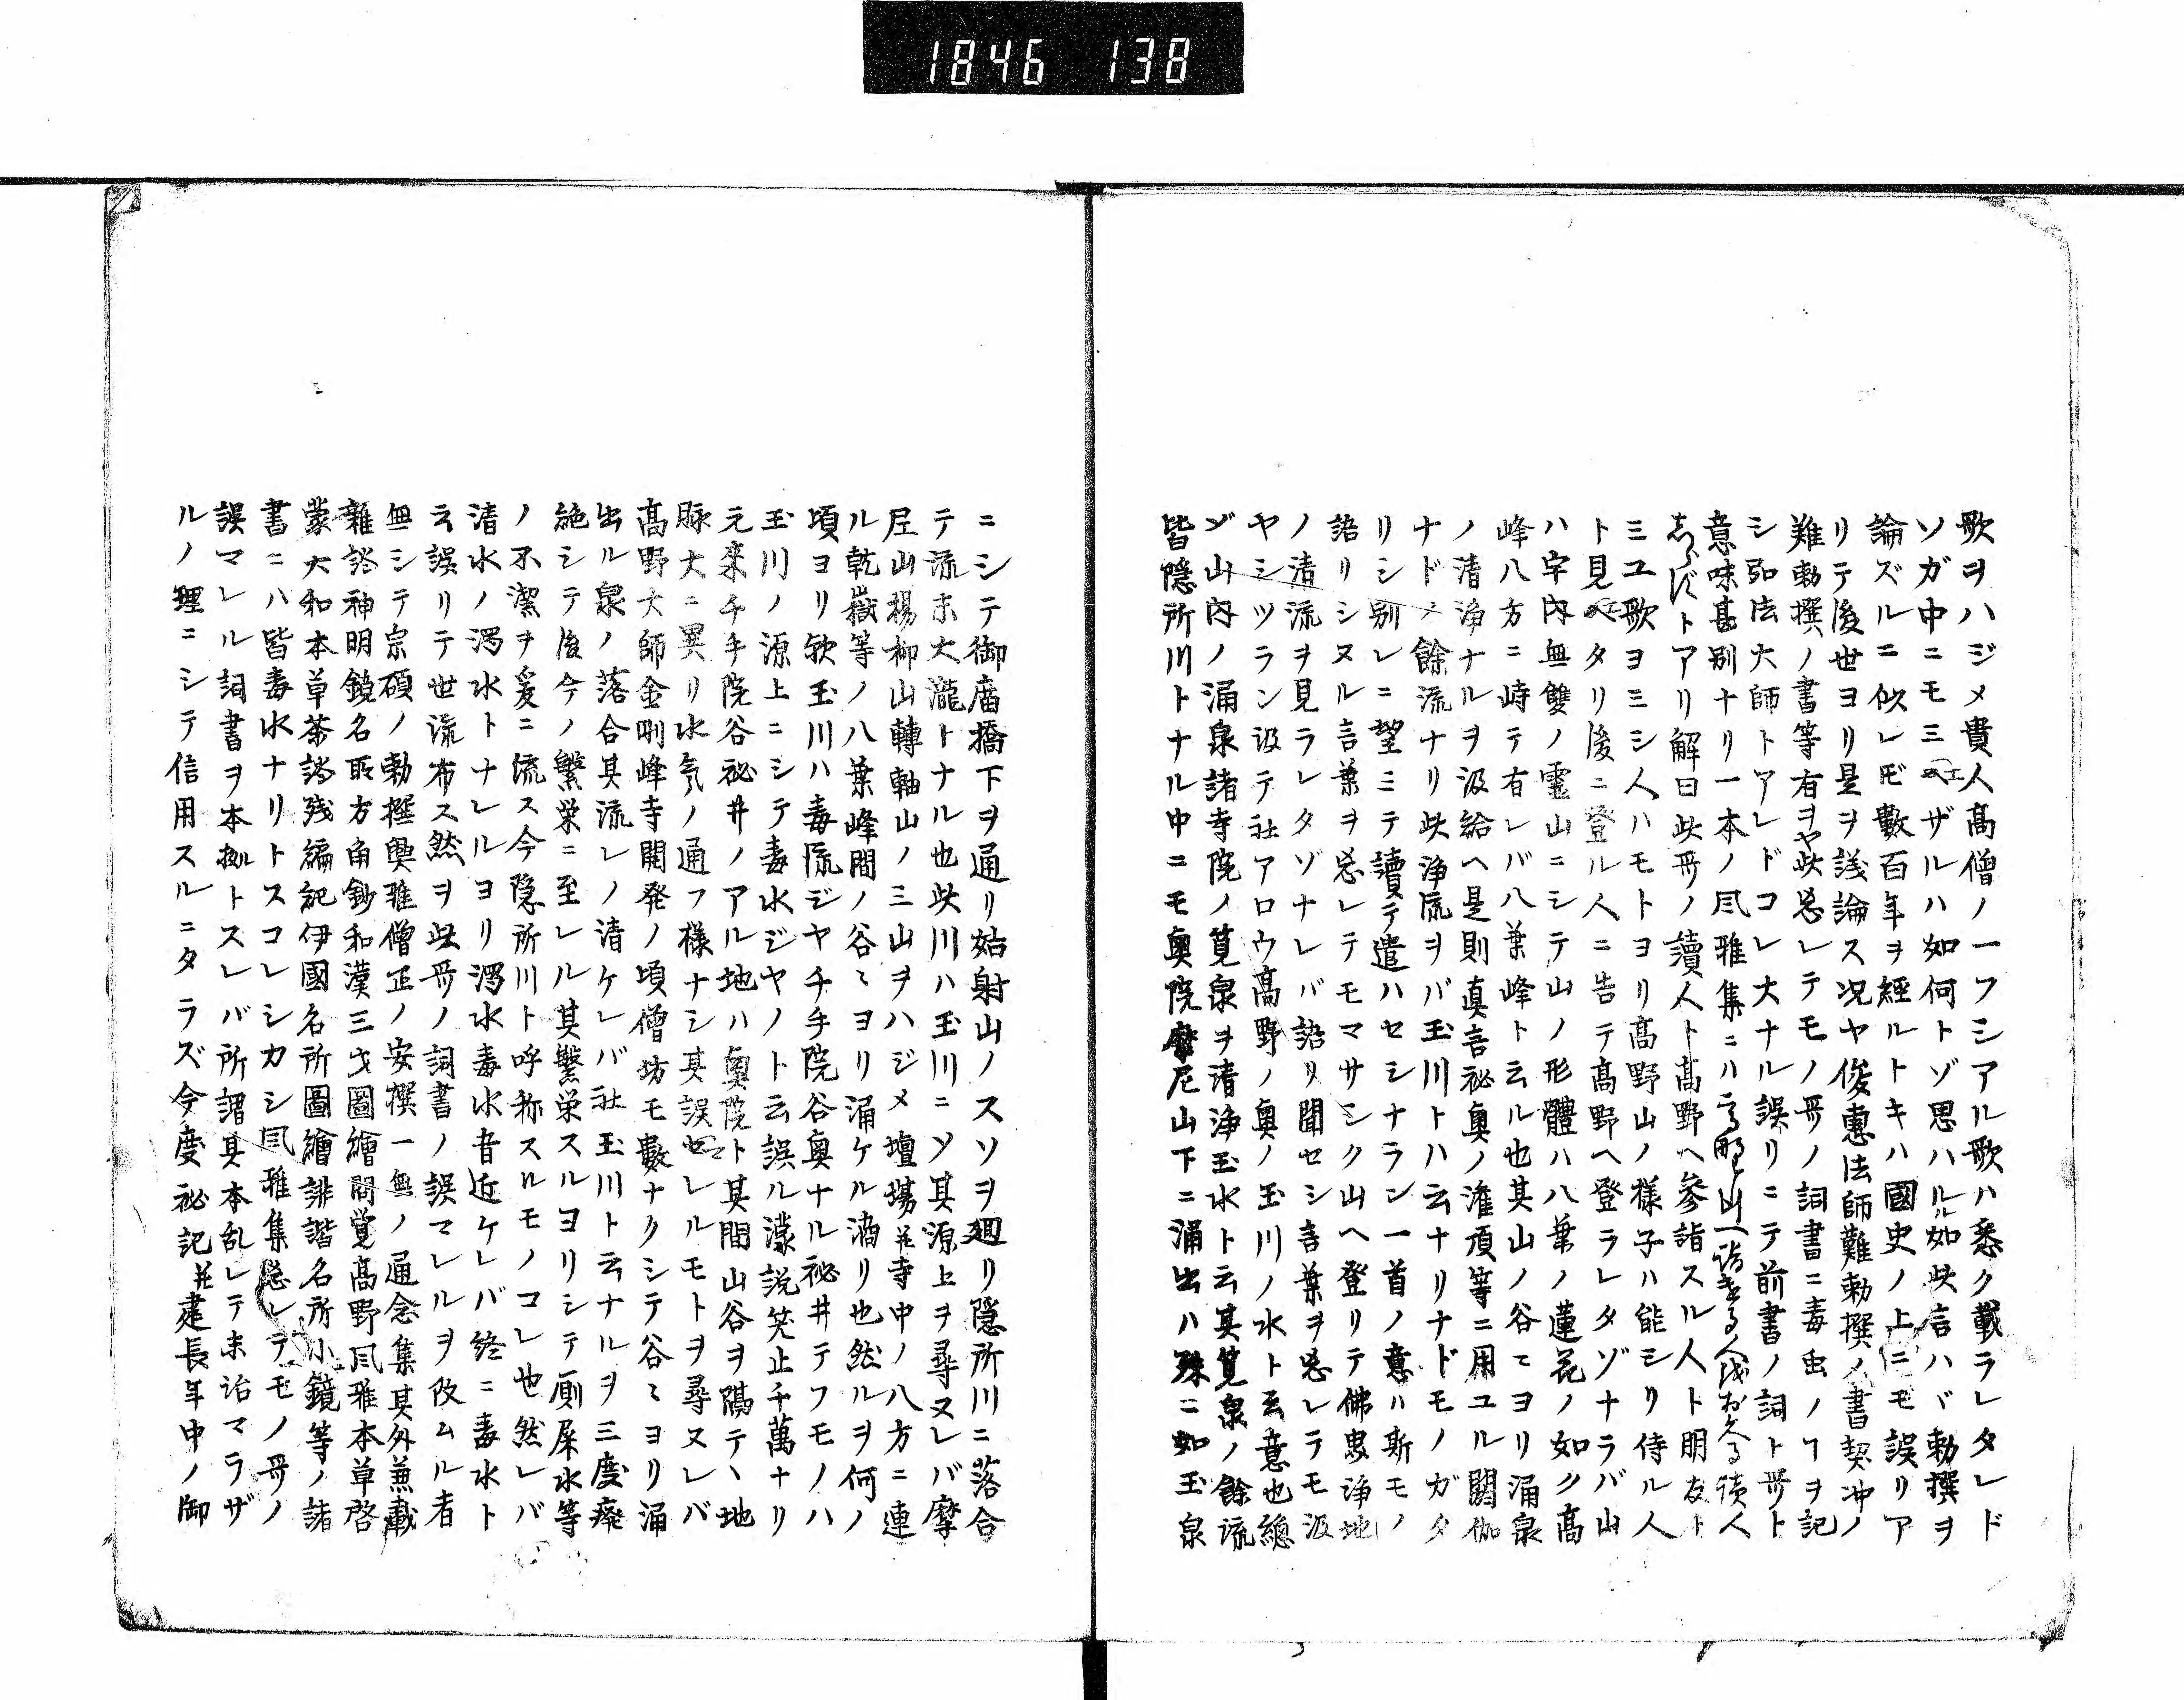 1846 138
歌ヲハジメ貴人髙僧ノ一フシアル歌ハ悉ク載ラレタレド
ソガ中ニモミエザルハ如何トゾ思ハルル如此言ハバ勅撰ヲ
論ズルニ似レ𪜈數百年ヲ經ルトキハ國史ノ上ニモ誤リア
リテ後世ヨリ是ヲ議論ス况ヤ俊惠法師難勅撰ノ書契冲ノ
難勅撰ノ書等有ヲヤ此忘レテモノ哥ノ詞書ニ毒虫ノヿヲ記
シ弘法大師トアレドコレ大ナル誤リニテ前書ノ詞ト哥ト
意味甚別ナリ一本ノ風雅集ニハ高野山へ詣
トアリ解曰此哥ノ讀人ト髙野ヘ參詣スル人ト朋友ト
ミユ歌ヨミシ人ハモトヨリ髙野山ノ樣子ハ能シリ侍ル人
ト見エタリ後ニ登ル人ニ告テ髙野ヘ登ラレタゾナラバ山
ハ宇内無雙ノ靈山ニシテ山ノ形體ハ八葉ノ蓮花ノ如ク髙
峰八方ニ峙テ有レバ八葉峰ト云ル也其山ノ谷〻ヨリ涌泉
ノ清浄ナルヲ汲給ヘ是則真言祕奥ノ潅頂等ニ用ユル閼伽
ナドノ餘流ナリ此浄流ヲバ玉川トハ云ナリナドモノガタ
リシ別レニ望ミテ讀テ遣ハセシナラン一首ノ意ハ斯モノ
語リシヌル言葉ヲ忘レテモマサシク山ヘ登リテ佛思浄地
ノ清流ヲ見ラレタゾナレバ語リ聞セシ言葉ヲ忘レテモ汲
ヤシツラン汲テ社アロウ髙野ノ奥ノ玉川ノ水ト云意也總
ジ山内ノ涌泉諸寺院ノ筧泉ヲ清浄玉水ト云其筧泉ノ餘流
皆隠所川トナル中ニモ奥院摩尼山下ニ涌出ハ殊ニ如玉泉
ニシテ御廟橋下ヲ通リ姑射山ノスソヲ廻リ隠所川ニ落合
テ流末大瀧トナル也此川ハ玉川ニソ其源上ヲ尋ヌレバ摩
尼山楊柳山轉軸山ノ三山ヲハジメ壇塲并寺中ノ八方ニ連
ル乾嶽等ノ八葉峰間ノ谷〻ヨリ涌ケル滴リ也然ルヲ何ノ
頃ヨリ欤玉川ハ毒流ジヤチ手院谷奥ナル祕井テフモノハ
玉川ノ源上ニシテ毒水ジヤノト云誤ル濛説笑止千萬ナリ
元來千手院谷祕井ノアル地ハ奥院ト其間山谷ヲ隔テヽ地
脉大ニ異リ水氣ノ通フ樣ナシ其誤セレルモトヲ尋ヌレバ
髙野大師金剛峰寺開発ノ頃僧坊モ數ナクシテ谷〻ヨリ涌
出ル泉ノ落合其流レノ清ケレバ社玉川ト云ナルヲ三度癈
絶シテ後今ノ繁栄ニ至レル其繁栄スルヨリシテ厠屎水等
ノ不潔ヲ爰ニ流ス今隠所川ト呼称スルモノコレ也然レバ
清水ノ濁水トナレルヨリ濁水毒水音近ケレバ終ニ毒水ト
云誤リテ世流布ス然ヲ此哥ノ詞書ノ誤マレルヲ攺ムル者
無シテ宗碩ノ勅撰輿雅僧正ノ安撰一無ノ通念集其外兼載
雜談神明鏡名取方角鈔和漢三才圖繪問覚髙野風雅本草啓
蒙大和本草茶談残編紀伊國名所圖繪誹諧名所小鏡等ノ諸
書ニハ皆毒水ナリトスコレシカシ風雅集忘レテモノ哥ノ
誤マレル詞書ヲ本拠トスレバ所謂其本乱レテ末治マラザ
ルノ理ニシテ信用スルニタラズ今度祕記并建長年中ノ御